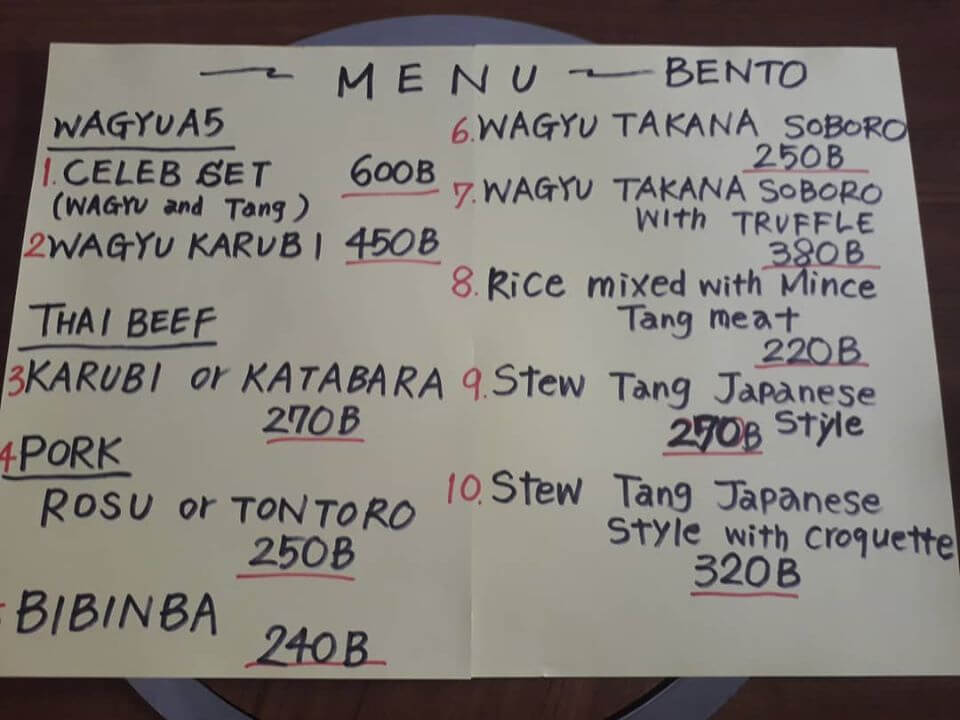 MENU BENTO
WAGYU A5
1. CELEB SET 600B
(WAGYU and Tang)
2 WAGYU KARUBI 450B
THAI BEEF
3 KARUBI or KATABARA
270B
4 PORK
ROSU or TONTORO
250B
BIBINBA
240B
6. WAGYU TAKANA SOBORO
250B
7. WAGYU TAKANA SOBORO
With TRUFFLE
380B
8. Rice mixed with Mince
Tang meat
220B
9. Stew Tang Japanese
270B Style
10. Stew Tang Japanese
Style with croquette
320B